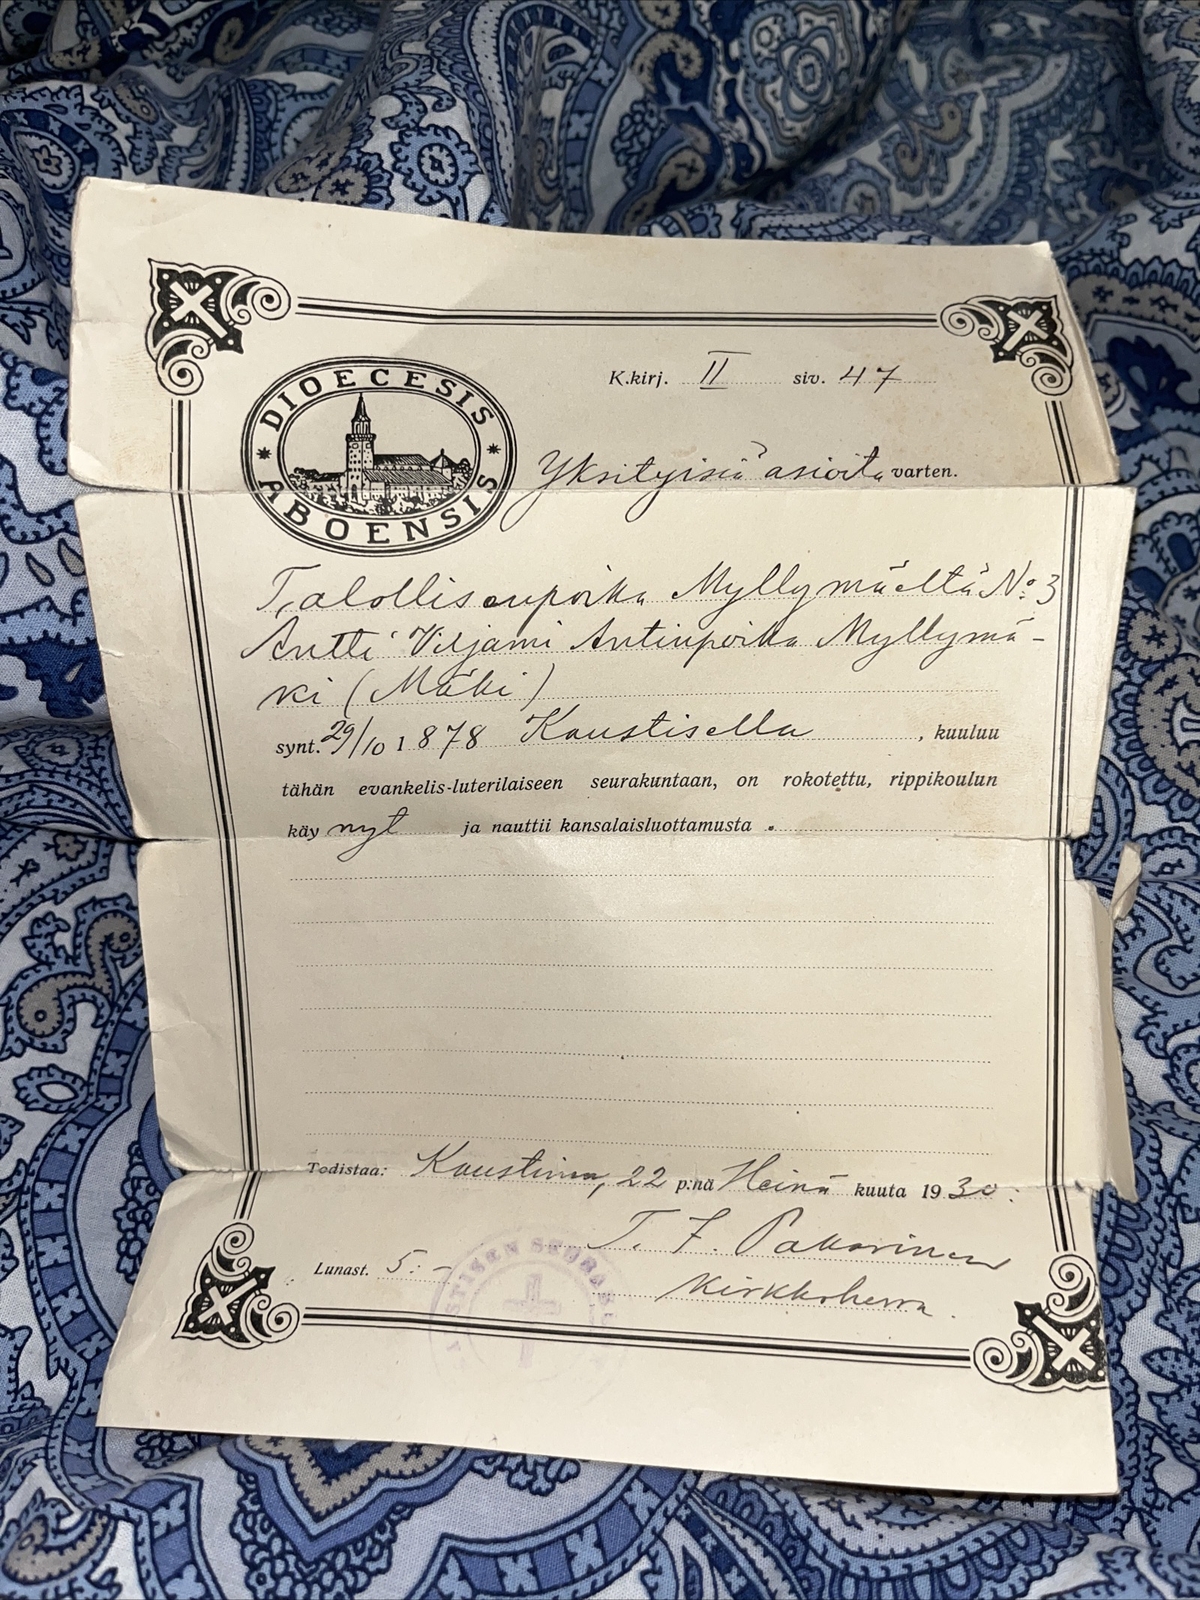 DIOECESIS
ABOENSIS
K.kirj. II siv. 47
Yksityisiä asioita varten.
Talollisenpoika Myllymäeltä No 3
Antti Viljami Antinpoika Myllymä-
ki (Mäki)
synt. 29/10 1878 Kaustisella, kuuluu
tähän evankelis-luterilaiseen seurakuntaan, on rokotettu, rippikoulun
käynyt ja nauttii kansalaisluottamusta .
Todistaa: Kaustinen, 22 p:nä Heinä kuuta 1930:
T. F. Pakarinen
Lunast. 5:-
Kirkkoherra